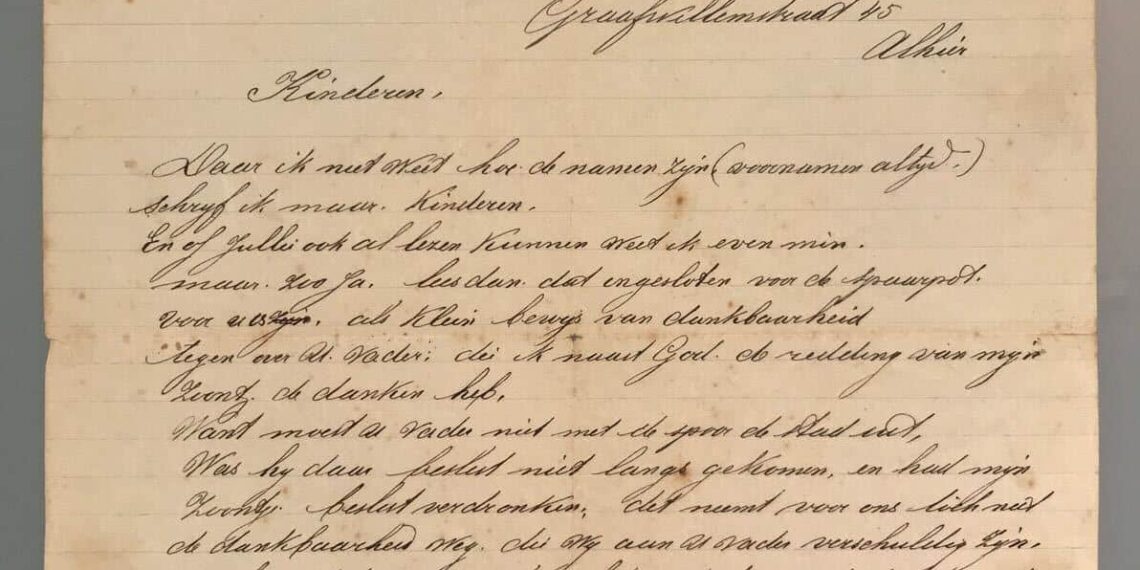 Graafwillemstraat 45
Alhier
Kinderen,
Daar ik niet weet hoe de namen zijn (voornamen altyd.)
schryf ik maar. Kinderen.
En of Jullie ook al lezen kunnen weet ik even min.
maar. Zoo Ja. lees dan. dat ingesloten voor de spaarpot.
voor u is. als Klein bewys van dankbaarheid
tegen over U. Vader; die ik naast God. de redding van mijn
Zoontj. de danken heb.
Want moest U Vader niet met de spoor de Stad uit,
Was hy daar beslist niet langs gekomen, en had mijn
Zoontje beslist verdronken; dit neemt voor ons toch niet
de dankbaarheid weg. die Wy aan U Vader verschuldig Zijn.